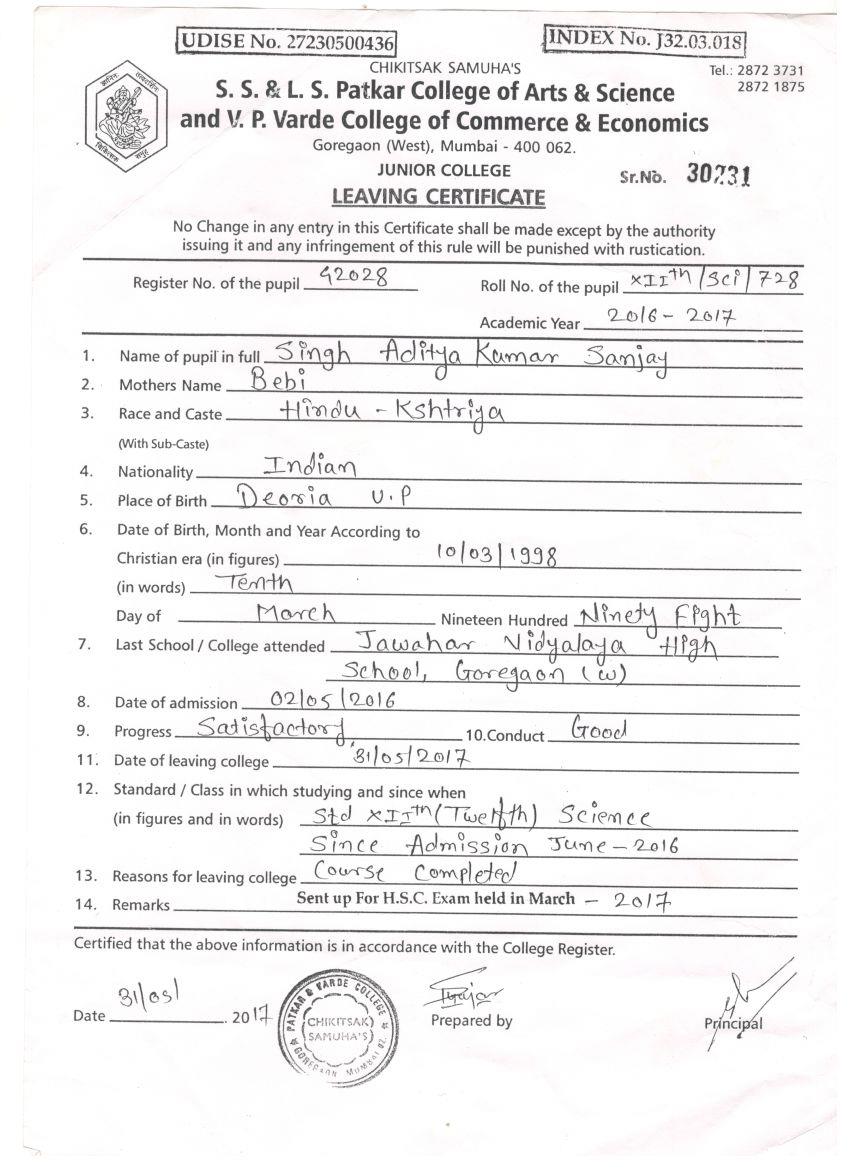 UDISE No. 27230500436
INDEX No. J32.03.018
CHIKITSAK SAMUHA'S
Tel.: 2872 3731
2872 1875
S. S. & L. S. Patkar College of Arts & Science
and V. P. Varde College of Commerce & Economics
Goregaon (West), Mumbai - 400 062.
JUNIOR COLLEGE
Sr.No. 30231
LEAVING CERTIFICATE
No Change in any entry in this Certificate shall be made except by the authority
issuing it and any infringement of this rule will be punished with rustication.
Register No. of the pupil 42028
Roll No. of the pupil XIIth/Sci/728
Academic Year 2016 - 2017
1. Name of pupil in full Singh Aditya Kumar Sanjay
2. Mothers Name Bebi
3. Race and Caste Hindu - Kshtriya
(With Sub-Caste)
4. Nationality Indian
5. Place of Birth Deoria U.P
6. Date of Birth, Month and Year According to
Christian era (in figures) 10/03/1998
(in words) Tenth
Day of March Nineteen Hundred Ninety Eight
7. Last School / College attended Jawahar Vidyalaya High
School, Goregaon (W)
8. Date of admission 02/05/2016
9. Progress Satisfactory 10.Conduct Good
11. Date of leaving college 31/05/2017
12. Standard / Class in which studying and since when
(in figures and in words) Std XIIth (Twelfth) Science
Since Admission June - 2016
13. Reasons for leaving college Course Completed
14. Remarks Sent up For H.S.C. Exam held in March - 2017
Certified that the above information is in accordance with the College Register.
Date 31/05/ 2017
PATKAR & VARDE COLLEGE
CHIKITSAK
SAMUHA'S
GOREGAON MUMBAI 62.
Prepared by
Principal